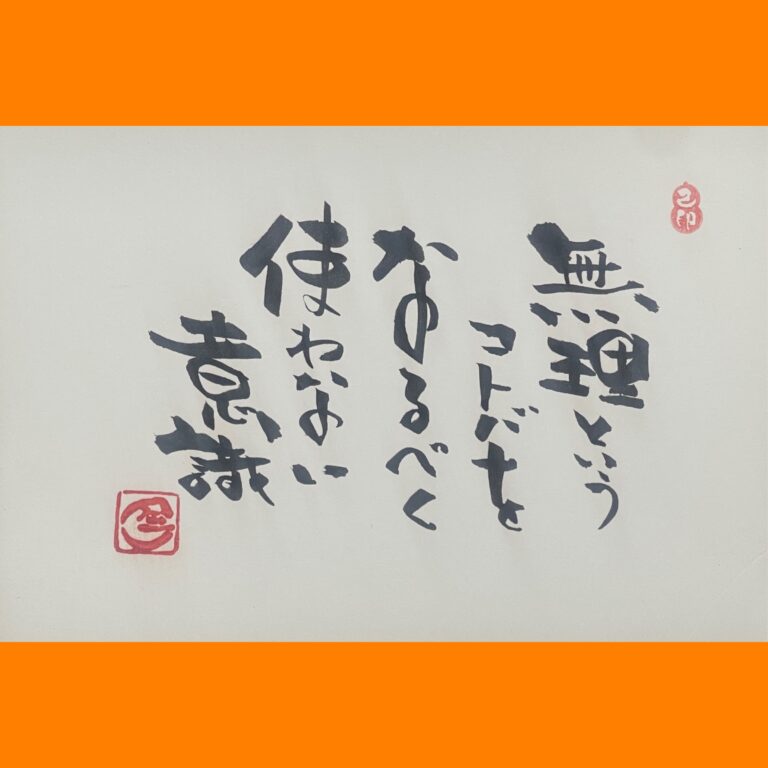 己卯
無理という
コトバを
なるべく
使わない
意識